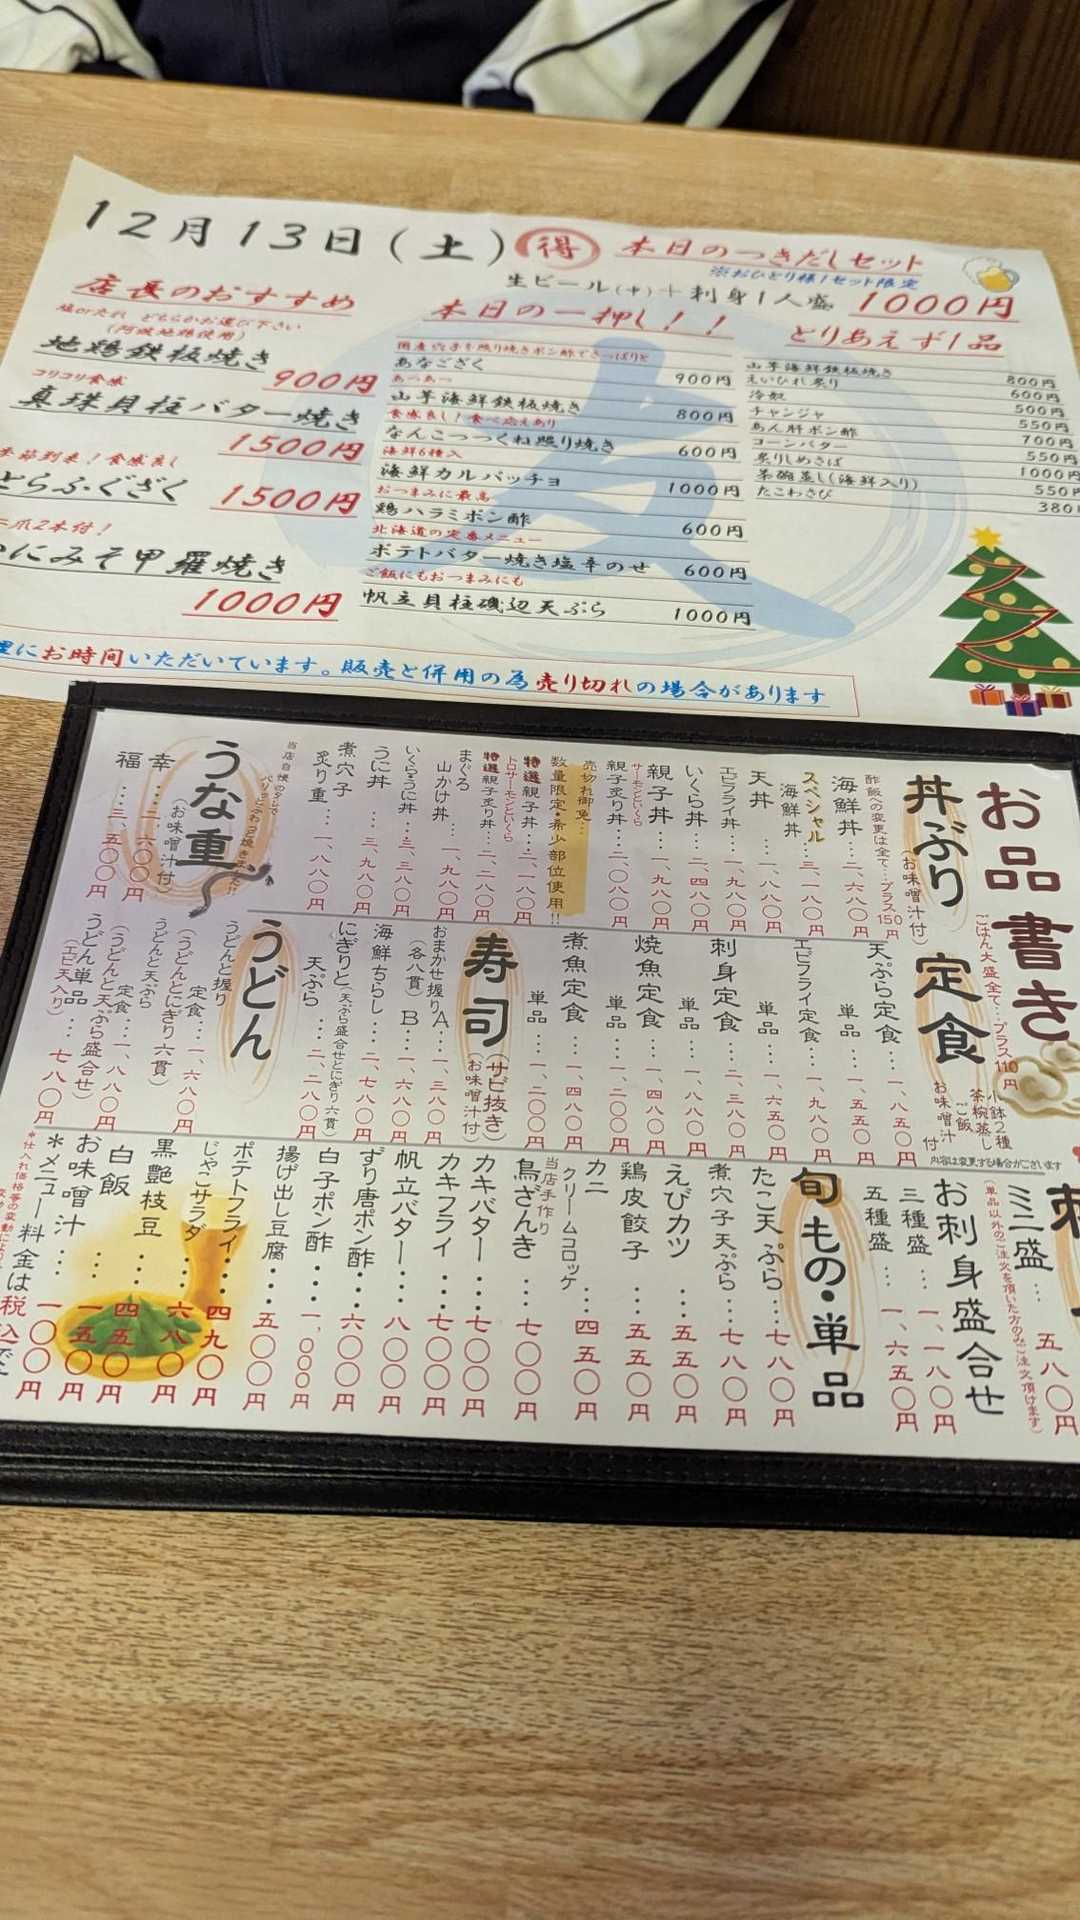 12月13日(土)
得 本日のつきだしセット
※おひとり様1セット限定
生ビール(中)+刺身1人盛 1000円
店長のおすすめ
塩orたれ どちらかお選び下さい
(阿波地鶏使用)
地鶏鉄板焼き
900円
コリコリ食感
真珠貝柱バター焼き
1500円
季節到来!食感良し
とらふぐざく
1500円
爪2本付!
かにみそ甲羅焼き
1000円
本日の一押し!!
国産穴子を照り焼きポン酢でさっぱりと
あなござく 900円
あっあっ
山芋海鮮鉄板焼き 800円
食感良し!食べ応えあり
なんこつつくね照り焼き 600円
海鮮6種入
海鮮カルパッチョ 1000円
おつまみに最高
鶏ハラミポン酢 600円
北海道の定番メニュー
ポテトバター焼き塩辛のせ 600円
ご飯にもおつまみにも
帆立貝柱磯辺天ぷら 1000円
とりあえず1品
山芋海鮮鉄板焼き 800円
えいひれ炙り 600円
冷奴 500円
チャンジャ 550円
あん肝ポン酢 700円
コーンバター 550円
炙りしめさば 1000円
茶碗蒸し(海鮮入り) 550円
たこわさび 380円
にお時間いただいています。販売と併用の為売り切れの場合があります
お品書き
ごはん大盛全て…プラス110円
丼ぶり
(お味噌汁付)
酢飯への変更は全て…プラス150円
海鮮丼…二、六八〇円
スペシャル
海鮮丼…三、一八〇円
天丼…一、八八〇円
エビフライ丼…一、九八〇円
いくら丼…二、四八〇円
親子丼…一、九八〇円
サーモンといくら
親子炙り丼…二、〇八〇円
売切れ御免…
数量限定・希少部位使用!!
特選親子丼…二、一〇〇円
トロサーモンといくら
特選親子炙り丼…二、二八〇円
まぐろ
山かけ丼…一、九八〇円
いくらうに丼…三、三八〇円
うに丼…三、九八〇円
煮穴子
炙り重…一、八八〇円
うな重
当店自慢のタレで
(お味噌汁付)
幸…二、六〇〇円
福…三、五〇〇円
定食
小鉢2種
茶椀蒸し
ご飯
お味噌汁
付
内容は変更する場合がございます
天ぷら定食…一、八五〇円
単品…一、五五〇円
エビフライ定食…一、九八〇円
単品…一、六五〇円
刺身定食…二、三八〇円
単品…一、八八〇円
焼魚定食…一、四八〇円
単品…一、二〇〇円
煮魚定食…一、四八〇円
単品…一、二〇〇円
寿司
(サビ抜き)
(お味噌汁付)
おまかせ握りA…一、三八〇円
(各八貫)B…一、六八〇円
海鮮ちらし…二、七八〇円
にぎりと(天ぷら盛合せとにぎり六貫)
天ぷら…二、二八〇円
うどん
うどんと握り
定食…一、六八〇円
(うどんとにぎり六貫)
うどんと天ぷら
定食…一、八八〇円
(うどんと天ぷら盛合せ)
うどん単品…七八〇円
(エビ天入り)
ミニ盛…五八〇円
(単品以外のご注文を頂いた方のみご注文頂けます)
お刺身盛合せ
三種盛…一、一八〇円
五種盛…一、六五〇円
旬もの・単品
たこ天ぷら…七八〇円
煮穴子天ぷら…七八〇円
えびカツ…五五〇円
鶏皮餃子…五五〇円
カニ
クリームコロッケ…四五〇円
当店手作り
鳥ざんき…七〇〇円
カキバター…七〇〇円
カキフライ…七〇〇円
帆立バター…八〇〇円
ずり唐ポン酢…六〇〇円
白子ポン酢…一、〇〇〇円
揚げ出し豆腐…五〇〇円
ポテトフライ…四九〇円
じゃこサラダ…六八〇円
黒艶枝豆…五五〇円
白飯…一五〇円
お味噌汁…一〇〇円
*メニュー料金は税込で
*仕入れ価格等の変動により